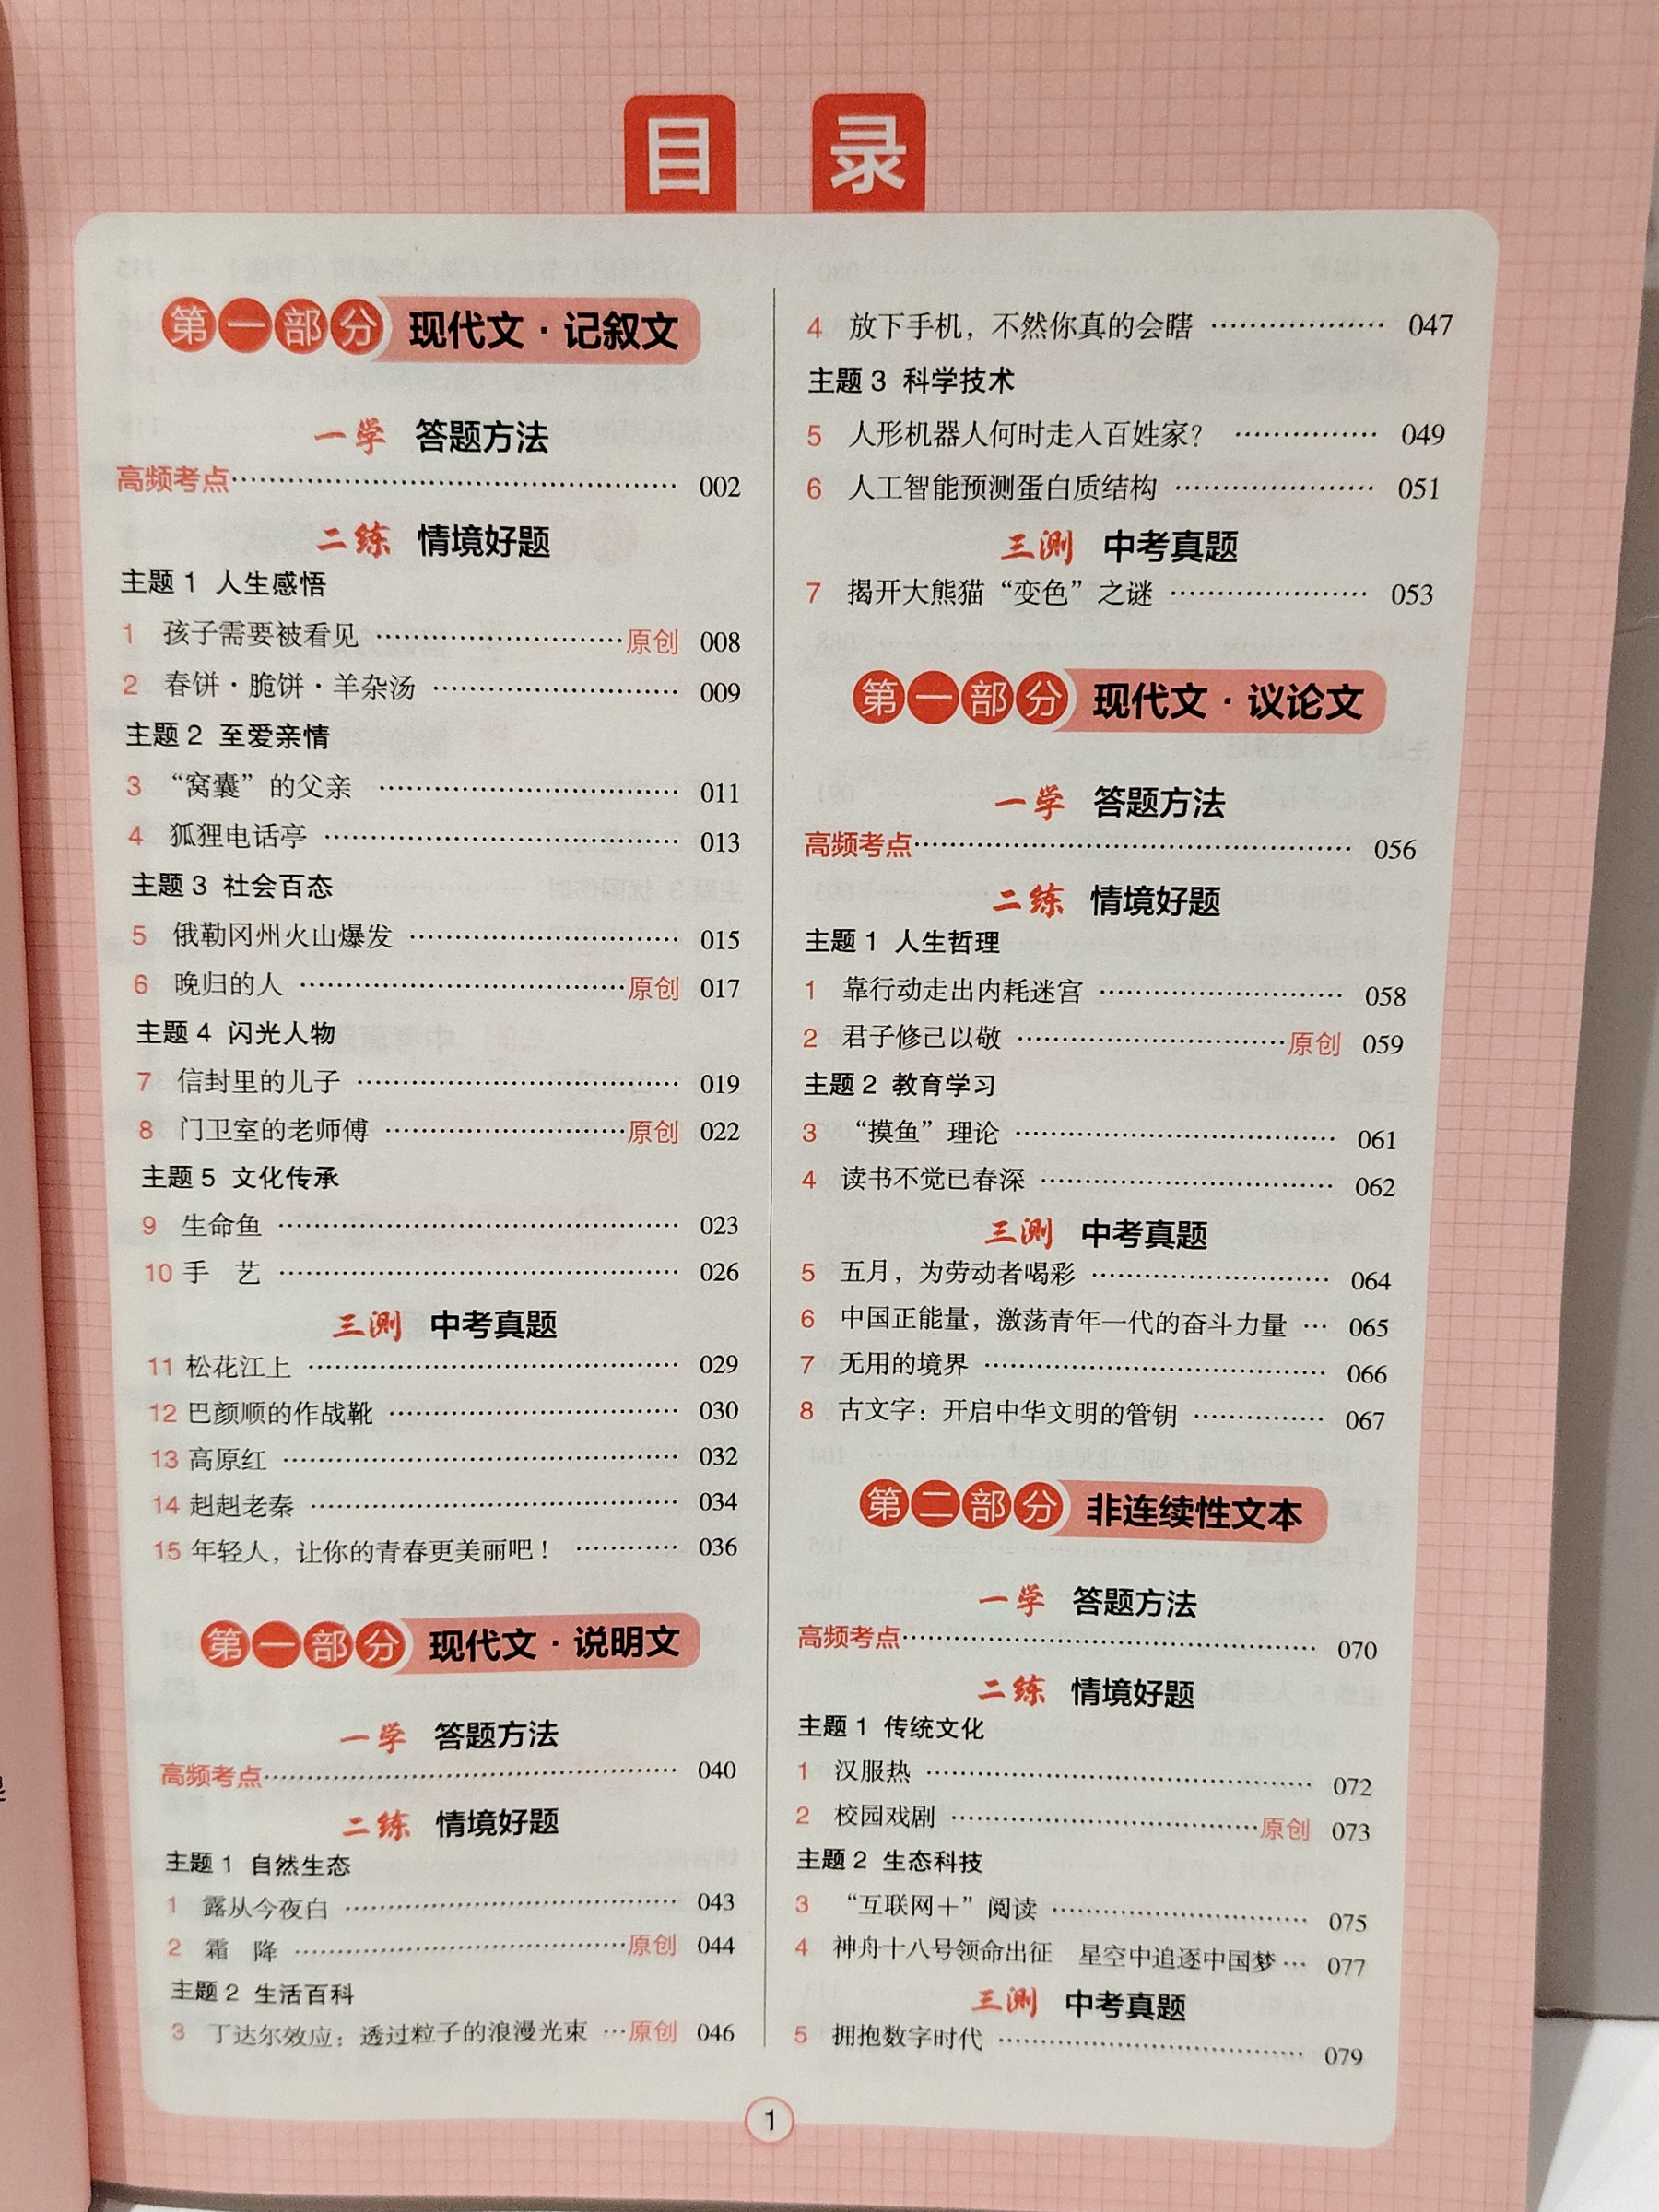 目 录
第一部分 现代文·记叙文
一学 答题方法
高频考点…… 002
二练 情境好题
主题1 人生感悟
1 孩子需要被看见 ……原创 008
2 春饼·脆饼·羊杂汤 …… 009
主题2 至爱亲情
3 “窝囊”的父亲 …… 011
4 狐狸电话亭 …… 013
主题3 社会百态
5 俄勒冈州火山爆发 …… 015
6 晚归的人 ……原创 017
主题4 闪光人物
7 信封里的儿子 …… 019
8 门卫室的老师傅 ……原创 022
主题5 文化传承
9 生命鱼 …… 023
10 手 艺 …… 026
三测 中考真题
11 松花江上 …… 029
12 巴颜顺的作战靴 …… 030
13 高原红 …… 032
14 赳赳老秦 …… 034
15 年轻人，让你的青春更美丽吧！ …… 036
第一部分 现代文·说明文
一学 答题方法
高频考点…… 040
二练 情境好题
主题1 自然生态
1 露从今夜白 …… 043
2 霜 降 ……原创 044
主题2 生活百科
3 丁达尔效应：透过粒子的浪漫光束 …原创 046
4 放下手机，不然你真的会瞎 …… 047
主题3 科学技术
5 人形机器人何时走入百姓家？ …… 049
6 人工智能预测蛋白质结构 …… 051
三测 中考真题
7 揭开大熊猫“变色”之谜 …… 053
第一部分 现代文·议论文
一学 答题方法
高频考点…… 056
二练 情境好题
主题1 人生哲理
1 靠行动走出内耗迷宫 …… 058
2 君子修己以敬 ……原创 059
主题2 教育学习
3 “摸鱼”理论 …… 061
4 读书不觉已春深 …… 062
三测 中考真题
5 五月，为劳动者喝彩 …… 064
6 中国正能量，激荡青年一代的奋斗力量 … 065
7 无用的境界 …… 066
8 古文字：开启中华文明的管钥 …… 067
第二部分 非连续性文本
一学 答题方法
高频考点…… 070
二练 情境好题
主题1 传统文化
1 汉服热 …… 072
2 校园戏剧 ……原创 073
主题2 生态科技
3 “互联网＋”阅读 …… 075
4 神舟十八号领命出征 星空中追逐中国梦… 077
三测 中考真题
5 拥抱数字时代 …… 079
1